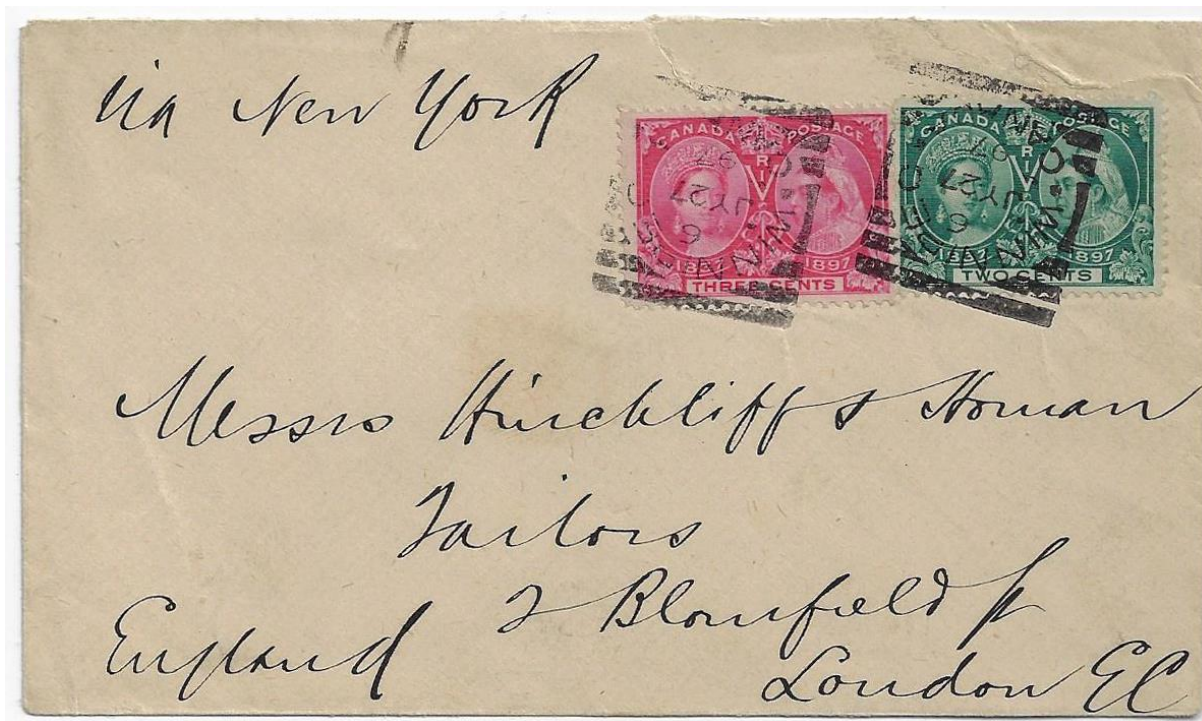 via New York
CANADA POSTAGE
1897
THREE CENTS
CANADA POSTAGE
1897
TWO CENTS
JY 27
97
JY 27
97
Messrs Hinchliff & Homan
Tailors
2 Blomfield St
England
London EC